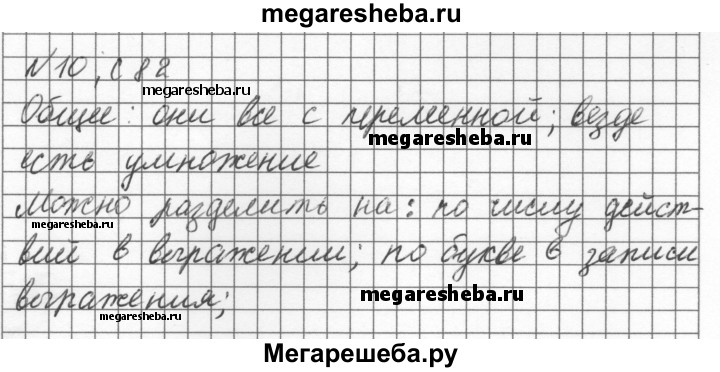 megaresheba.ru
№10, с 82
megaresheba.ru
Общее: они все с переменной; везде
megaresheba.ru
есть умножение
Можно разделить на: по числу дейст-
megaresheba.ru
вий в выражении; по букве в записи
выражения;
megaresheba.ru
megaresheba.ru
Мегарешеба.ру